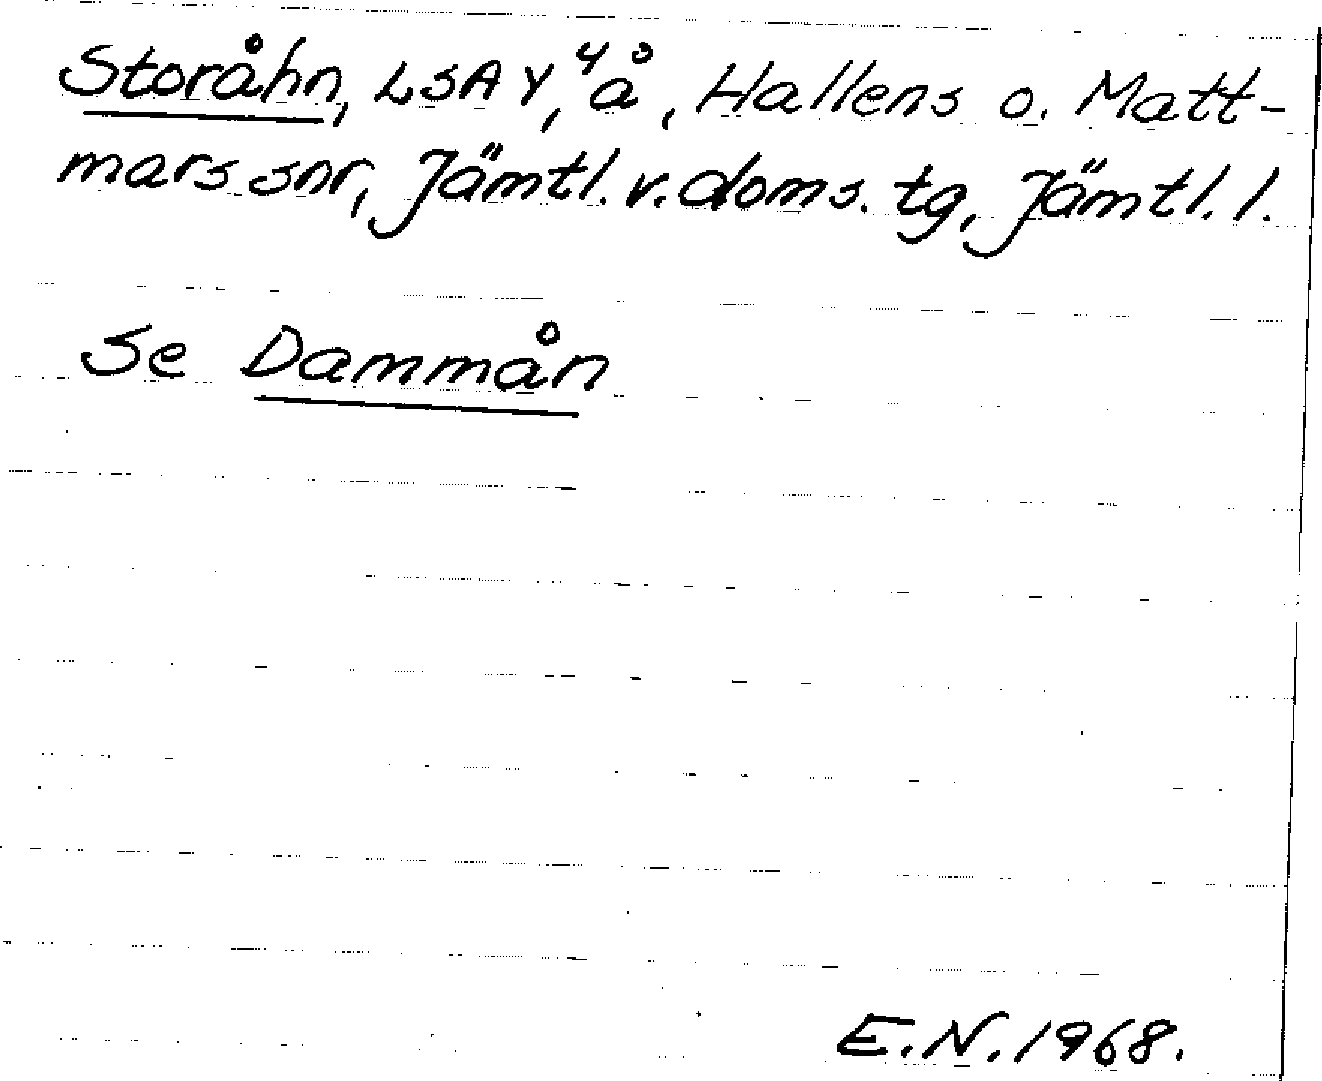 Storåhn, LSA Y, ⁴å, Hallens o. Matt-
mars snr, Jämtl. v. doms. tg, Jämtl. l.
Se Dammån
E.N. 1968.